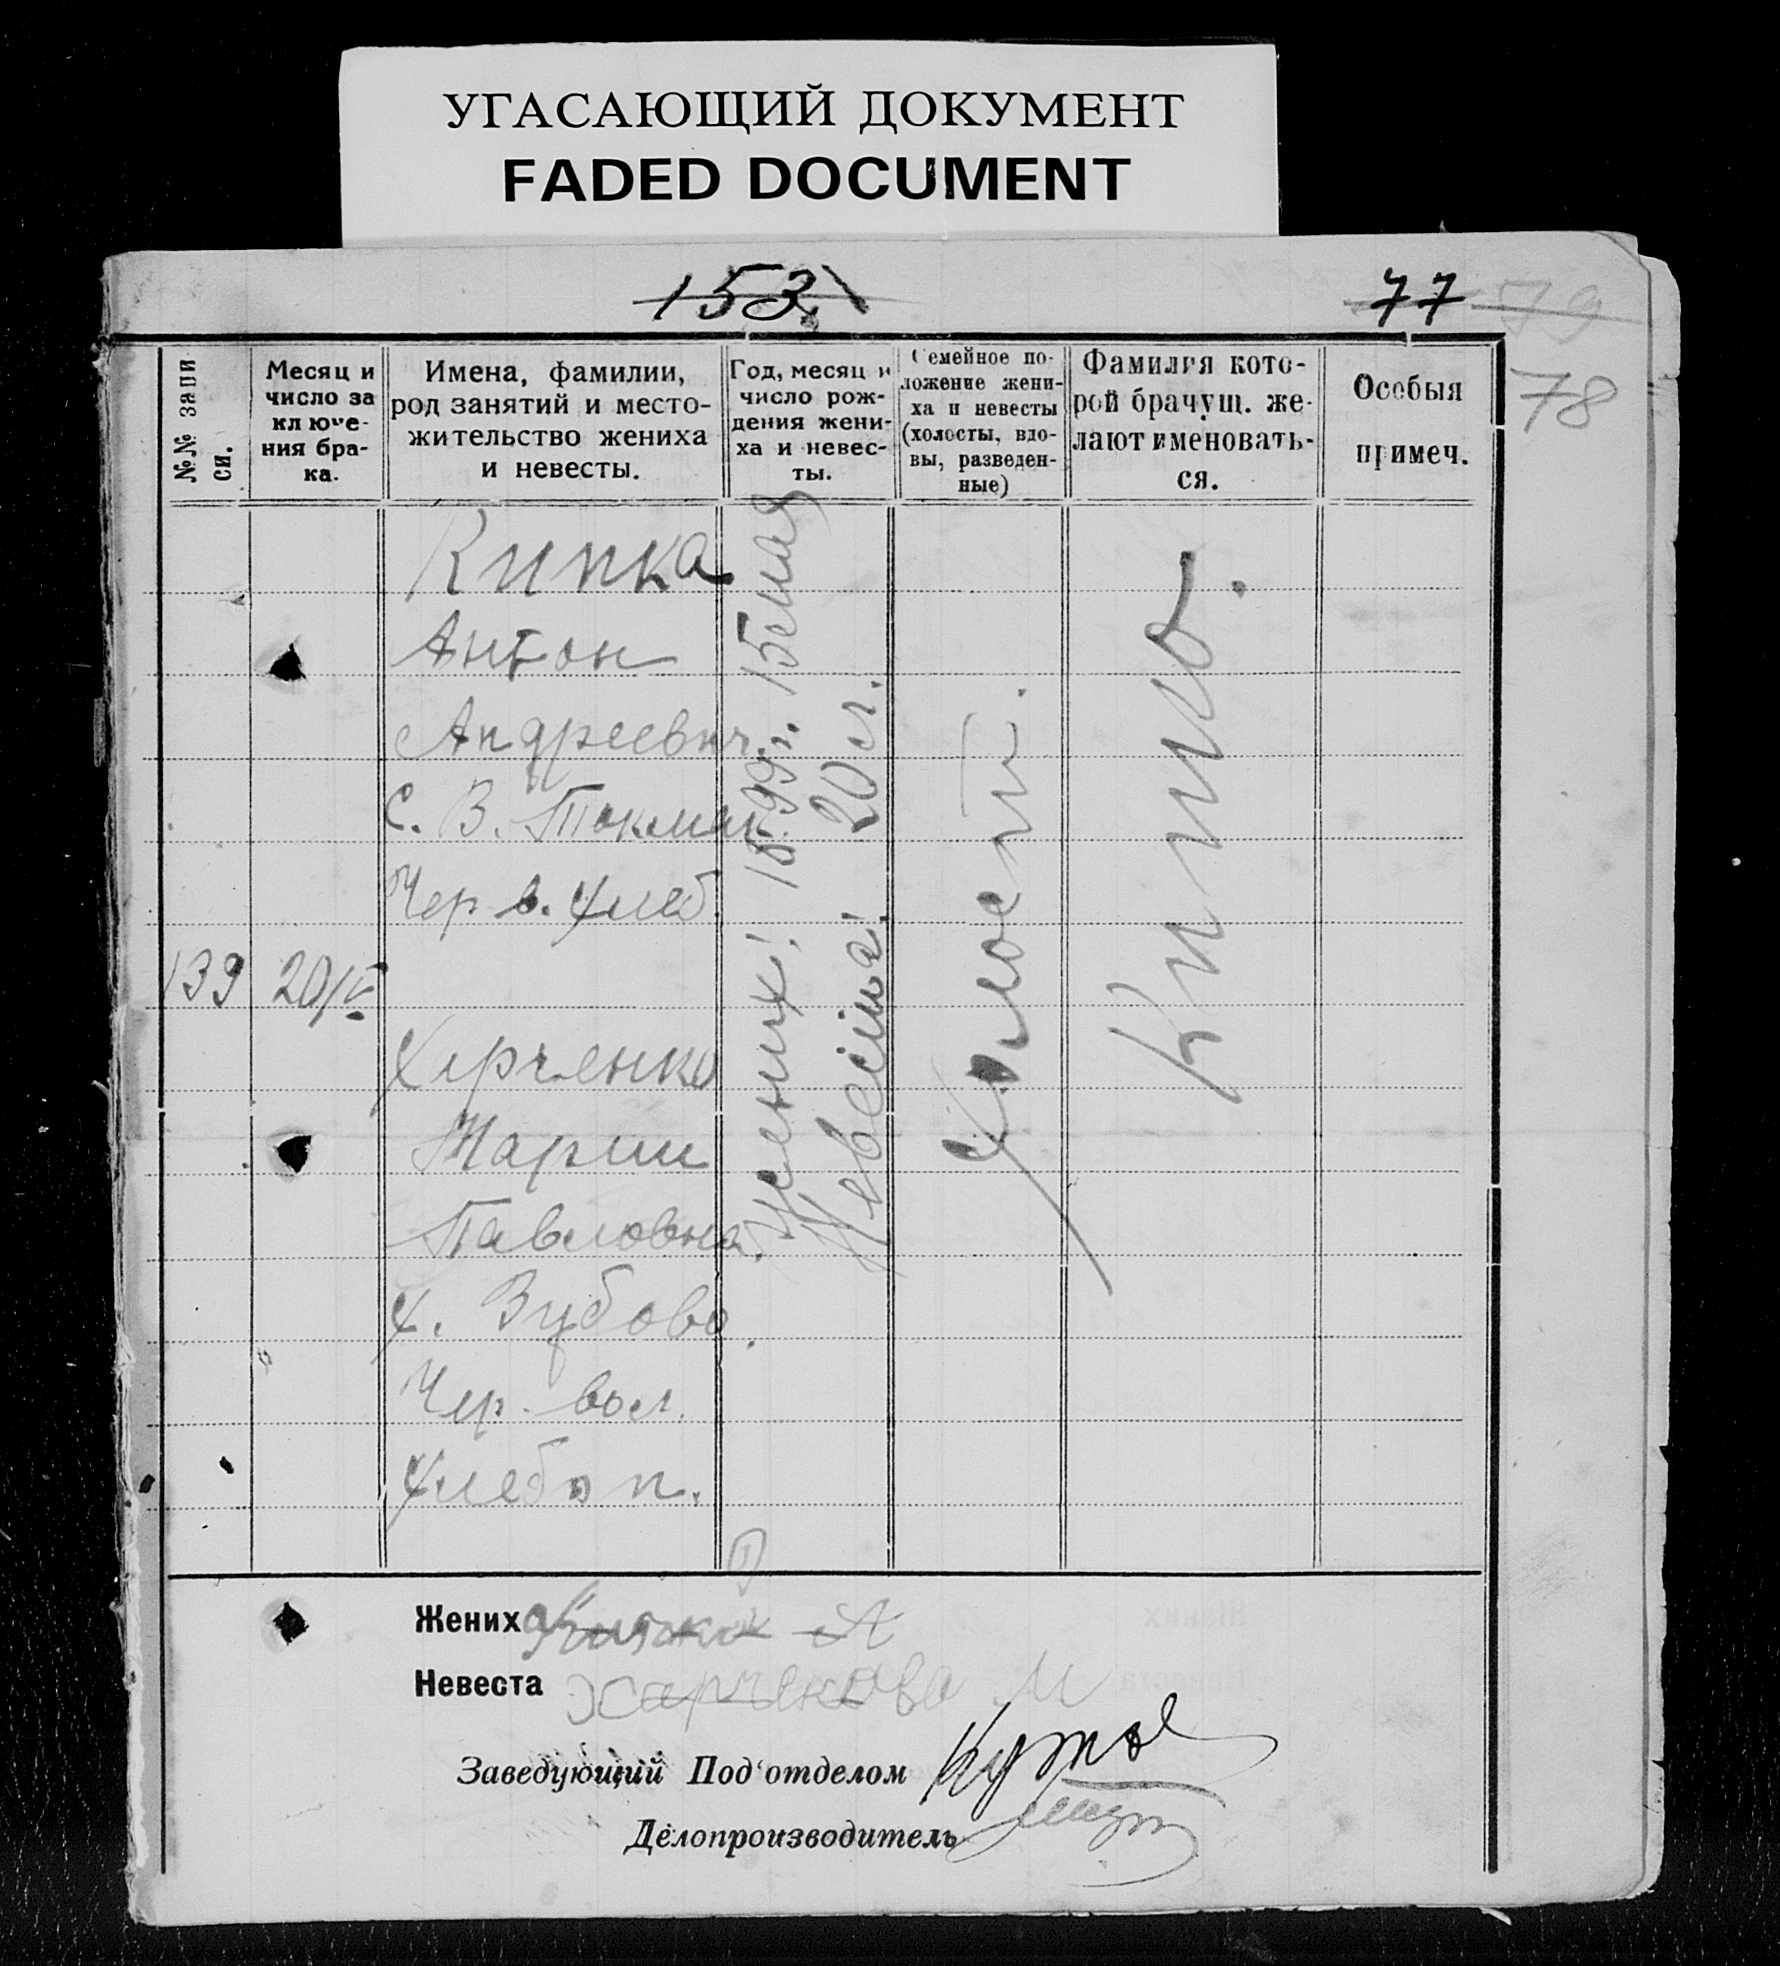 УГАСАЮЩИЙ ДОКУМЕНТ
FADED DOCUMENT
153.
77
79
78
№№ запи
си.
Месяц и
число за
кл юче-
ния бра-
ка.
Имена, фамилии,
род занятий и место-
жительство жениха
и невесты.
Год, месяц и
число рож-
дения жени-
ха и невес-
ты.
Семейное по-
ложение жени-
ха и невесты
(холосты, вдо-
вы, разведен-
ные)
Фамилия кото-
рой брачущ. же-
лают именовать-
ся.
Особыя
примеч.
139
20/
Кипка
Антон
Андреевич.
С. В. Токмак
Чер в. хлеб.
Харченко
Марии
Павловна.
х. Зубово.
Чер. вол.
хлебоп.
Жених! 1899 г. 15 мая
Невеста! 20 л.
Холост.
Кипко.
Жених Кипко А
Невеста Харчекова М
Заведующий Под'отделом
Делопроизводитель